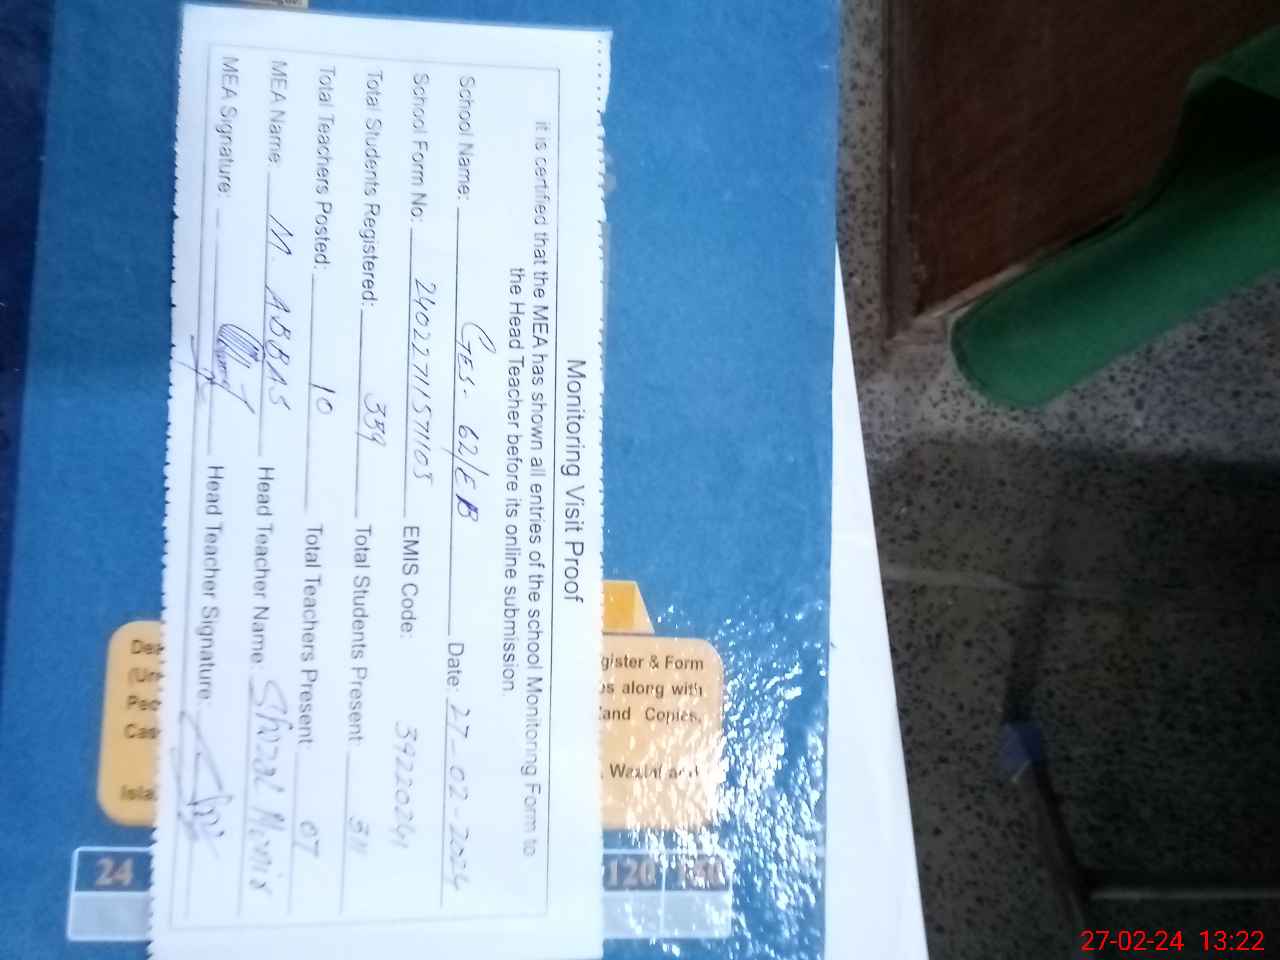 Monitoring Visit Proof
it is certified that the MEA has shown all entries of the school Monitoring Form to
the Head Teacher before its online submission.
School Name: GES- 62/EB Date: 27-02-2024
School Form No: 24022711571103 EMIS Code: 39220241
Total Students Registered: 339 Total Students Present: 311
Total Teachers Posted: 10 Total Teachers Present 07
MEA Name: M. ABBAS Head Teacher Name:
MEA Signature: Head Teacher Signature:
gister & Form
os along with
and Copies,
Dea
(Un
Peo
Cas
Isla
24 120 140
27-02-24 13:22